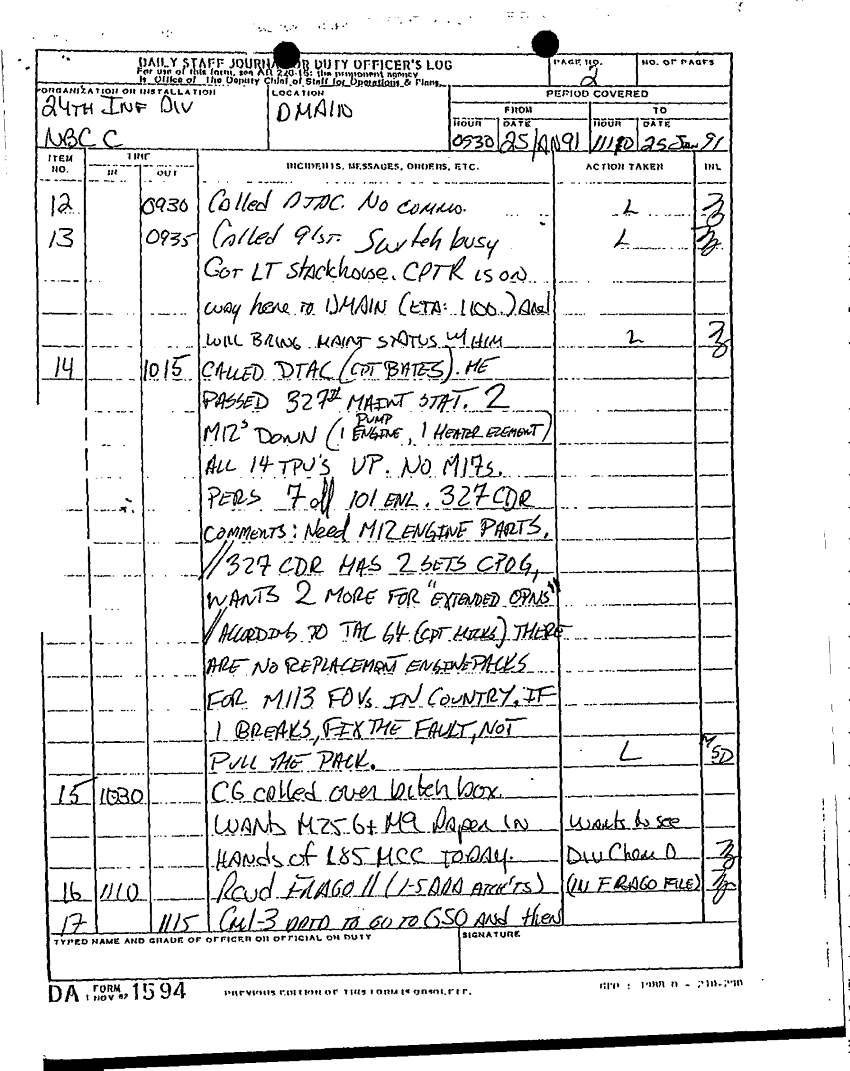 DAILY STAFF JOURNAL OR DUTY OFFICER'S LOG
For use of this form, see AR 220-15; the proponent agency
is Office of The Deputy Chief of Staff for Operations & Plans.
PAGE NO.
2
NO. OF PAGES
ORGANIZATION OR INSTALLATION
24TH INF DIV
NBC C
LOCATION
DMAIN
PERIOD COVERED
FROM
TO
HOUR DATE HOUR DATE
0930 25 JAN 91 25 Jan 91
ITEM NO.
TIME
IN OUT
INCIDENTS, MESSAGES, ORDERS, ETC.
ACTION TAKEN
INL
12 0930 Called DTAC. No commo. L
13 0935 Called 91st. Switch busy L
Got LT Stackhouse. CPT R is on
way here to DMAIN (ETA: 1100.) And
will bring maint status w/ him L
14 1015 CALLED DTAC (CPT BATES). HE
PASSED 327th MAINT STAT. 2
M12s DOWN (1 PUMP ENGINE, 1 HEATER ELEMENT)
ALL 14 TPU'S UP. NO M17s.
PERS 7 off 101 ENL. 327 CDR
COMMENTS: Need M12 ENGINE PARTS.
//327 CDR HAS 2 SETS CPOG,
WANTS 2 MORE FOR "EXTENDED OPNS"
//ACCORDING TO TAC G4 (CPT HICKS) THERE
ARE NO REPLACEMENT ENGINE PACKS
FOR M113 FOVs IN COUNTRY. IF
1 BREAKS, FIX THE FAULT, NOT
PULL THE PACK. L
15 1030 CG called over bitch box.
WANTS M256 + M9 Paper in Wants to see
HANDS of 185 MCC TODAY. Div Chem O
16 1110 Rcvd FRAGO 11 (1-5 ADA ATCH'TS) (IN FRAGO FILE)
17 1115 Cml-3 to go to GSO and then
TYPED NAME AND GRADE OF OFFICER OR OFFICIAL ON DUTY
SIGNATURE
DA FORM 1 NOV 62 1594
PREVIOUS EDITION OF THIS FORM IS OBSOLETE.